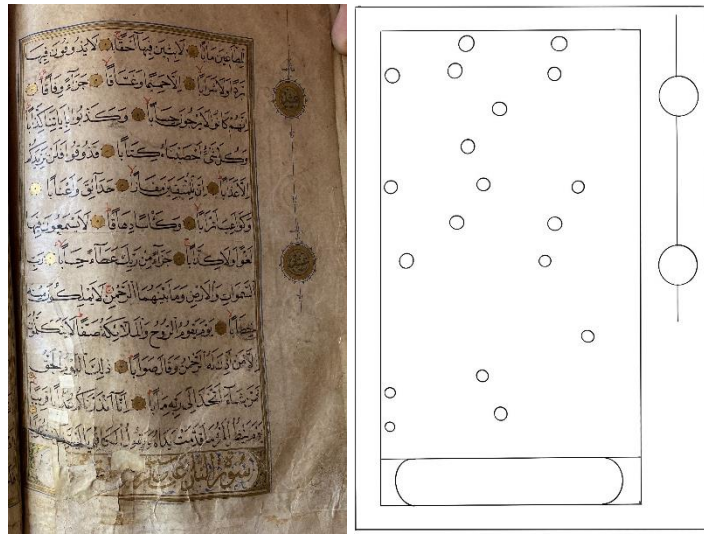 لِلطَّاغِينَ مَآبًا لَابِثِينَ فِيهَا أَحْقَابًا لَا يَذُوقُونَ فِيهَا
بَرْدًا وَلَا شَرَابًا إِلَّا حَمِيمًا وَغَسَّاقًا جَزَآءً وِفَاقًا
إِنَّهُمْ كَانُوا لَا يَرْجُونَ حِسَابًا وَكَذَّبُوا بِآيَاتِنَا كِذَّابًا
وَكُلَّ شَيْءٍ أَحْصَيْنَاهُ كِتَابًا فَذُوقُوا فَلَنْ نَزِيدَكُمْ
إِلَّا عَذَابًا إِنَّ لِلْمُتَّقِينَ مَفَازًا حَدَآئِقَ وَأَعْنَابًا
وَكَوَاعِبَ أَتْرَابًا وَكَأْسًا دِهَاقًا لَا يَسْمَعُونَ فِيهَا
لَغْوًا وَلَا كِذَّابًا جَزَآءً مِنْ رَبِّكَ عَطَآءً حِسَابًا رَبِّ
السَّمَوَاتِ وَالْأَرْضِ وَمَا بَيْنَهُمَا الرَّحْمَنِ لَا يَمْلِكُونَ مِنْهُ
خِطَابًا يَوْمَ يَقُومُ الرُّوحُ وَالْمَلَائِكَةُ صَفًّا لَا يَتَكَلَّمُونَ
إِلَّا مَنْ أَذِنَ لَهُ الرَّحْمَنُ وَقَالَ صَوَابًا ذَلِكَ الْيَوْمُ الْحَقُّ
فَمَنْ شَآءَ اتَّخَذَ إِلَى رَبِّهِ مَآبًا إِنَّا أَنْذَرْنَاكُمْ عَذَابًا قَرِيبًا
يَوْمَ يَنْظُرُ الْمَرْءُ مَا قَدَّمَتْ يَدَاهُ وَيَقُولُ الْكَافِرُ يَا لَيْتَنِي
سورة النازعات